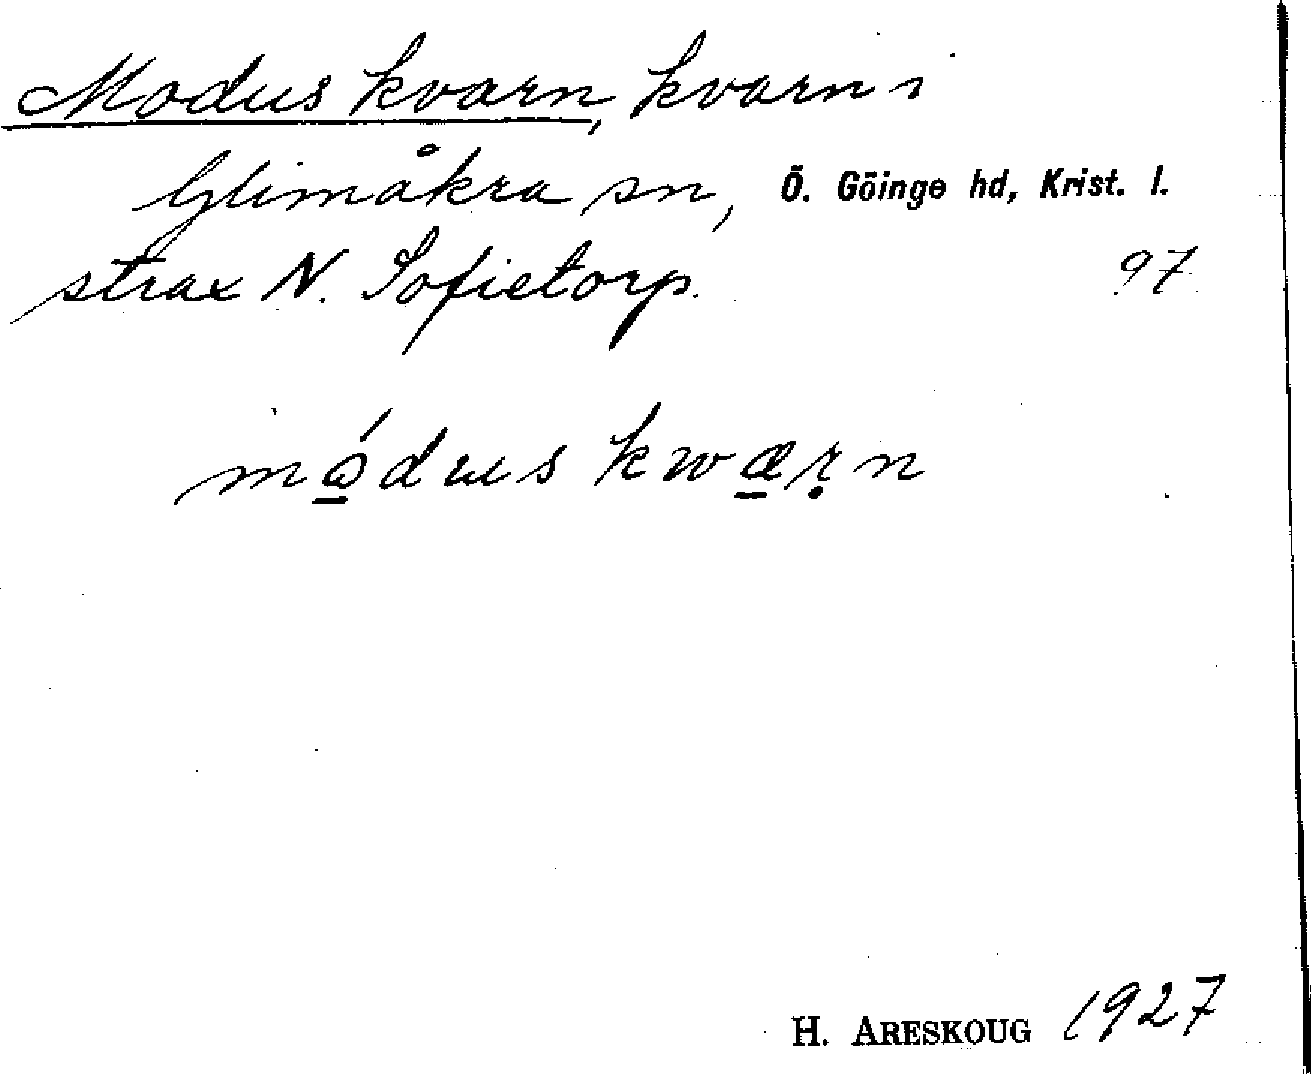 Modus kvarn, kvarn i
Glimåkra sn, Ö. Göinge hd, Krist. l.
strax N. Sofietorp. 97
kwæṛn
H. ARESKOUG 1927